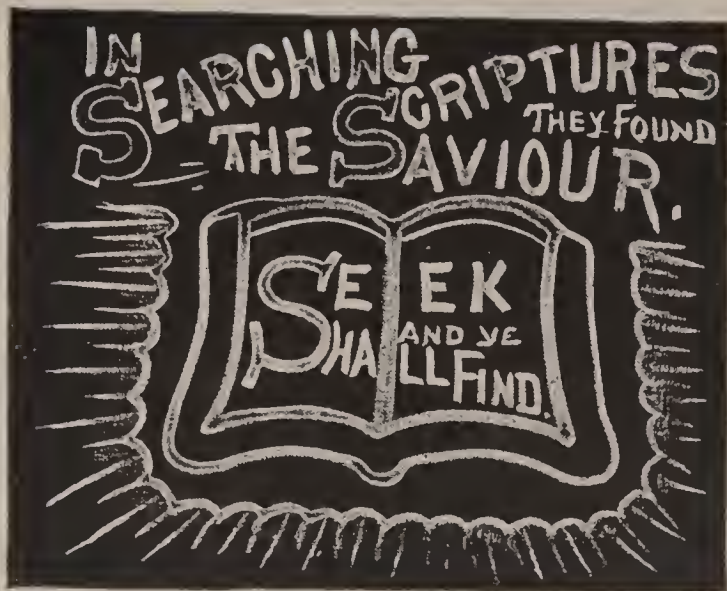 IN
SEARCHING SCRIPTURES
THEY FOUND
THE SAVIOUR.
SEEK
AND YE
SHALL FIND.